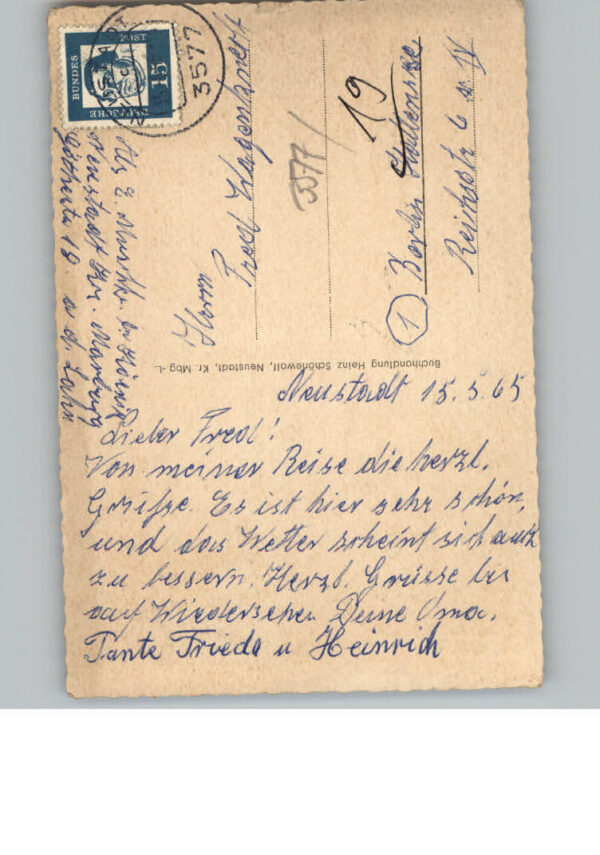 Neustadt 15.5.65
Lieber Fred!
Von meiner Reise die herzl.
Grüße. Es ist hier sehr schön,
und das Wetter scheint sich auch
zu bessern. Herzl. Grüsse bis
auf Wiedersehen Deine Oma.
Tante Frieda u Heinrich
Herrn
Fred Wagenknecht
3577/
19
1 Berlin
Reichsstr 6
Neustadt Kr. Marburg
18 a d. Lahn
Buchhandlung Heinz Schönewolf, Neustadt, Kr. Mbg.-L.
DEUTSCHE
BUNDES
POST
15
3577